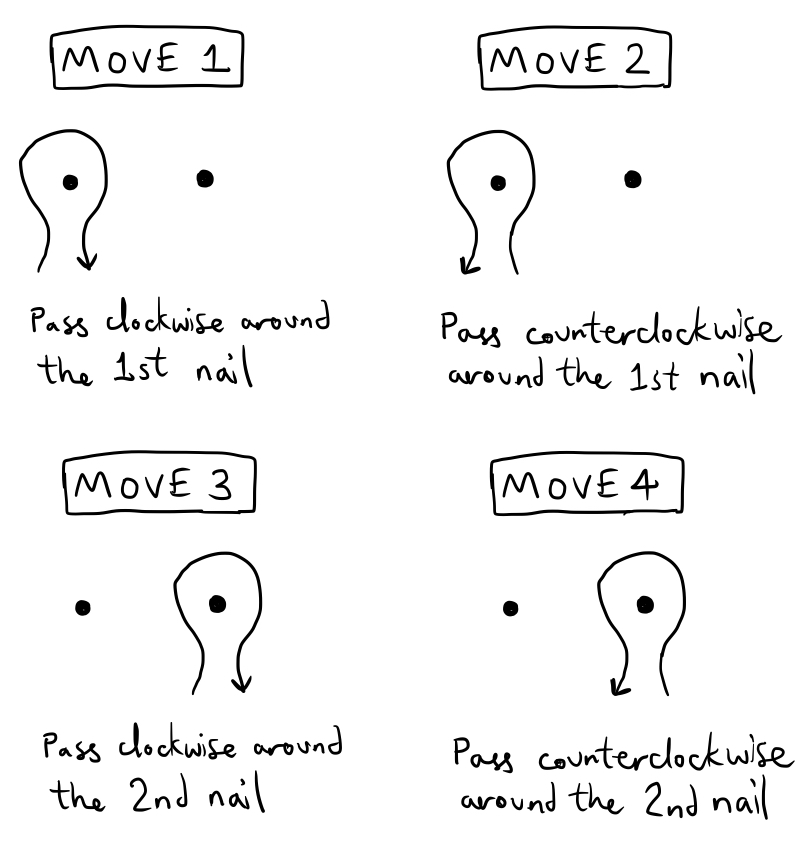 MOVE 1
Pass clockwise around
the 1st nail
MOVE 2
Pass counterclockwise
around the 1st nail
MOVE 3
Pass clockwise around
the 2nd nail
MOVE 4
Pass counterclockwise
around the 2nd nail